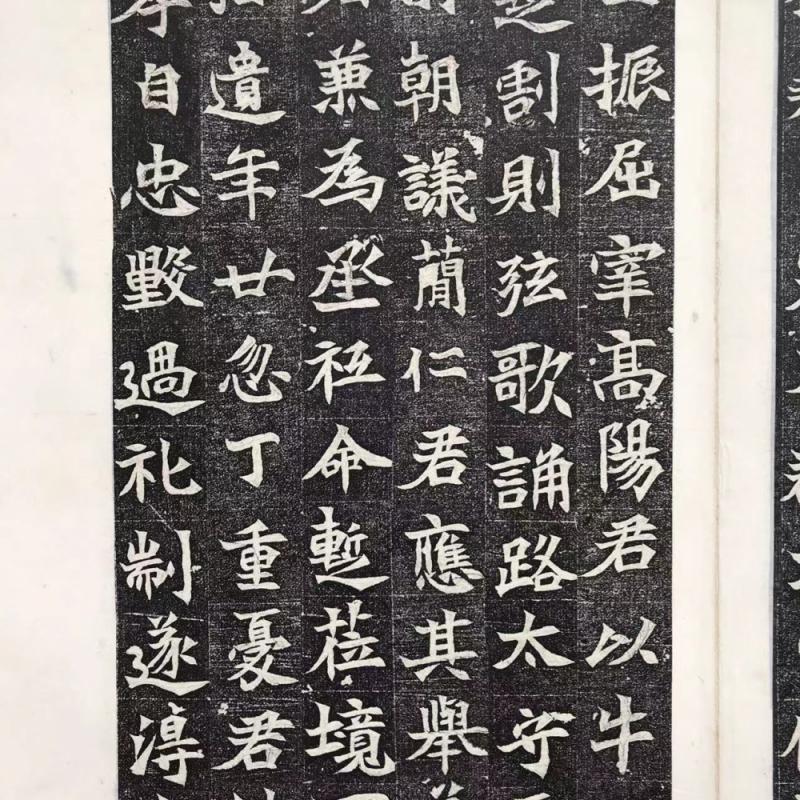 振屈宰高陽君以牛
割則弦歌誦路太守
朝議蕳仁君應其舉
兼為丞祗命蹔莅境
遺年廿忽丁重憂君
自忠毀過礼制遂淳